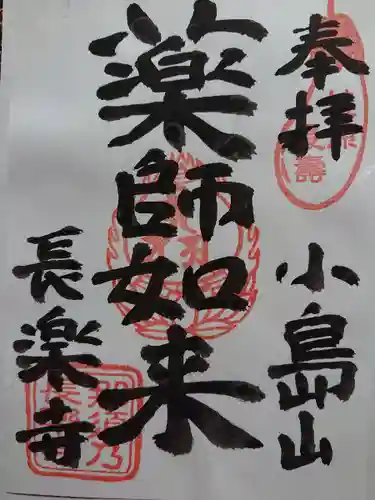 奉拝
小島山
薬師如来
長楽寺